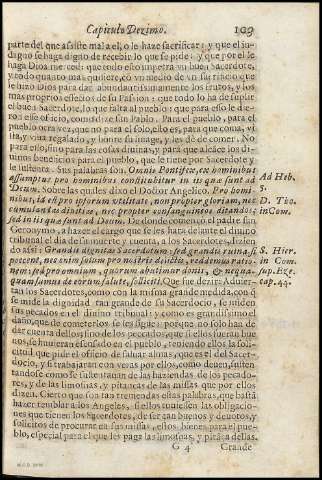 Capitulo Dezimo. 109
parte del que assiste mal a el, o le haze sacrificar; y que el su-
digno se haga digno de recebir lo que se pide; y que por el le
haga Dios merced: que todo esto impetra vn buẽ Sacerdote,
y todo quanto mas quisiere, cõ vn medio de vn sacrificio que
le hizo Dios para dar abundantissimamente los frutos, y los
mas proprios efectos de su Passion: que todo lo ha de suplir
el buẽ Sacerdote, lo que falta al pueblo; que para esso le die-
ron esse oficio, como dize san Pablo. Para el pueblo, para el
pueblo otra vez, que no para si solo, ello es, para que coma, vi-
sta, y viva regalado, y honre su linage, y les dè de comer. No
para esso, sino para las cosas divinas, y para que alcãce los di-
uinos beneficios para el pueblo, que le tiene por Sacerdote y
le sustenta. Sus palabras son. Omnis Pontifex, ex hominibus
assumptus pro hominibus constituitur in iis quæ sunt ad
Deum. Sobre las quales dixo el Doctor Angelico. Pro homi-
nibus, id est pro ipsorum vtilitate, non propter gloriam, nec
cumulandas diuitias, nec propter consanguineos ditandos,
sed in iis quæ sunt ad Deum. De donde comento el padre san
Geronymo, a hazer el cargo que se les ha de ante el diuino
tribunal el dia de su muerte y cuenta, a los Sacerdotes, dizien
do assi: Grandis dignitas Sacerdotum, sed grandis ruina, si
peccent, nec enim solum pro nostris delictis, reddemus ratio-
nem: sed pro omnium, quorum abutimur donis, & nequa-
quam sumus de eorum salute, solliciti. Que fue dezir: Aduier-
tan los Sacerdotes, como con la misma grande medida, con q̃
se mide la dignidad tan grande de su Sacerdocio, se miden
sus pecados en el diuino tribunal: y como es grandissimo el
daño, que de cometerlos se les sigue: porque no solo han de
dar cuenta dellos, sino de los pecados, que si ellos fueran bue
nos, se huuieran escusado en el pueblo, teniendo ellos la soli-
citud que pide el oficio de saluar almas, que es el del Sacer-
docio, y si trabajaran con veras por ellos, como deuen, susten-
tandose como se sustentan de las haziendas de los pecado-
res, y de las limosnas, y pitanças de las missas que por ellos
dizen. Cierto que son tan tremendas estas palabras, que bastã
hazer temblar a los Angeles, si ellos tuuiessen las obligacio-
nes que tienen los Sacerdotes, de ser tan buenos y deuotos, y
solicitos de procurar en sus missas, estos bienes para el pue-
blo, especial para el que les paga las limosnas, y pitãças dellas.
G 4 Grande
Ad Heb.
5.
D. Tho.
in Com.
S. Hier.
in Com.
sup. Eze.
cap. 44.